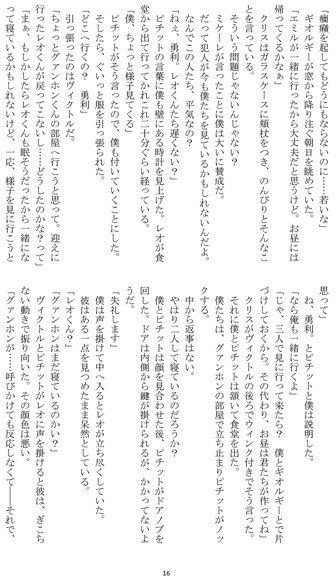 癇癪を起してもどうにもならないのに……若いな」
ギオルギーが窓から降り注ぐ朝日を眺めていた。
「エミルが一緒に行ったから大丈夫だと思うけど。お昼には
帰ってくるかなぁ」
クリスはガラスケースに頬杖をつき、のんびりとそんなこ
とを言っている。
そういう問題じゃないんじゃない？
ミケーレが言ったことに僕は大いに賛成だ。
だって犯人が今も僕たちを見ているかもしれないんだよ。
なんでこの人たち、平気なの？
「ねぇ、勇利。レオくんたち遅くない？」
ピチットの言葉に僕も壁にある時計を見上げた。レオが食
堂から出て行ってかれこれ二十分ぐらい経っている。
「僕、ちょっと様子見てくる」
ピチットがそう言ったので、僕も付いていくことにした。
そしたら、ぐいっと服を引っ張られた。
「どこへ行くの？　勇利」
引っ張ったのはヴィクトルだ。
「ちょっとグァンホンの部屋へ行こうと思って。迎えに
行ったレオくんが戻ってこないし……どうしたのかな？って」
「まぁ、もしかしたらレオくんも眠そうだったから一緒にな
って寝ているかもしれないけど、一応、様子を見に行こうと
思って」
「ね、勇利。とピチットと僕は説明した。
「なら俺も一緒に行くよ」
「じゃ、三人で見に行って来たら？　僕とギオルギーとで片
づけしておくから。その代わり、お昼は君たちが作ってね」
クリスがヴィクトルの後ろでウィンク付きでそう言った。
それに僕とピチットは頷いて食堂を出た。
僕たちは、グァンホンの部屋で立ち止まりピチットがノッ
クする。
中から返事はない。
やはり二人して寝ているのだろうか？
僕とピチットは顔を見合わせた後、ピチットがドアノブを
回した。ドアは内側から鍵が掛けられるが、かかってないよ
うだ。
「失礼します」
僕は声を掛けて中へ入るとレオが立ち尽くしていた。
彼はある一点を見つめたまま呆然としている。
「レオくん？」
「グァンホンはまだ寝ているのかい？」
ヴィクトルとピチットがレオに声を掛けると彼は、ぎこち
ない動きで振り向いた。その顔色は悪い。
「グァンホンが……呼びかけても反応しなくて――それで、
16